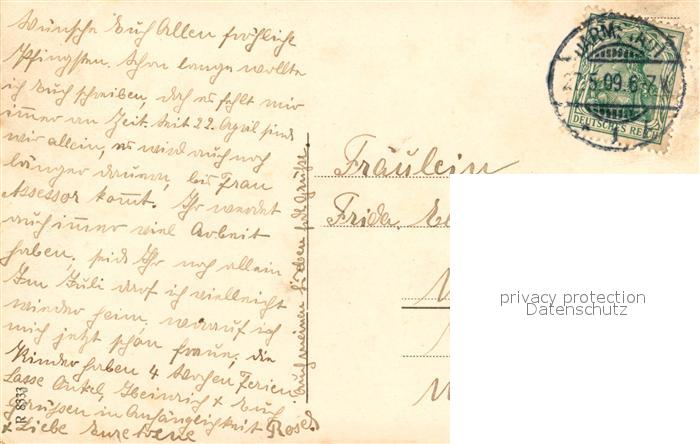 Wünsche Euch Allen fröhliche
Pfingsten. Schon lange wollte
ich Euch schreiben, doch es fehlt mir
immer an Zeit. Seit 22. April sind
wir allein, es wird auch noch
länger dauern, bis Frau
Assessor kommt. Ihr werdet
auch immer viel Arbeit
haben, seid Ihr noch allein
Im Juli darf ich vielleicht
wieder heim, worauf ich
mich jetzt schon freue, die
Kinder haben 4 Wochen Ferien
Lasse Onkel, Heinrich + Euch
Grüssen in Anhänglichkeit
+ Liebe Eure Rosel
auch meinen lieben Grüsse.
NR 8833
DARMSTADT
27.5.09.6-7.
DEUTSCHES REICH
Fräulein
Frida
privacy protection
Datenschutz